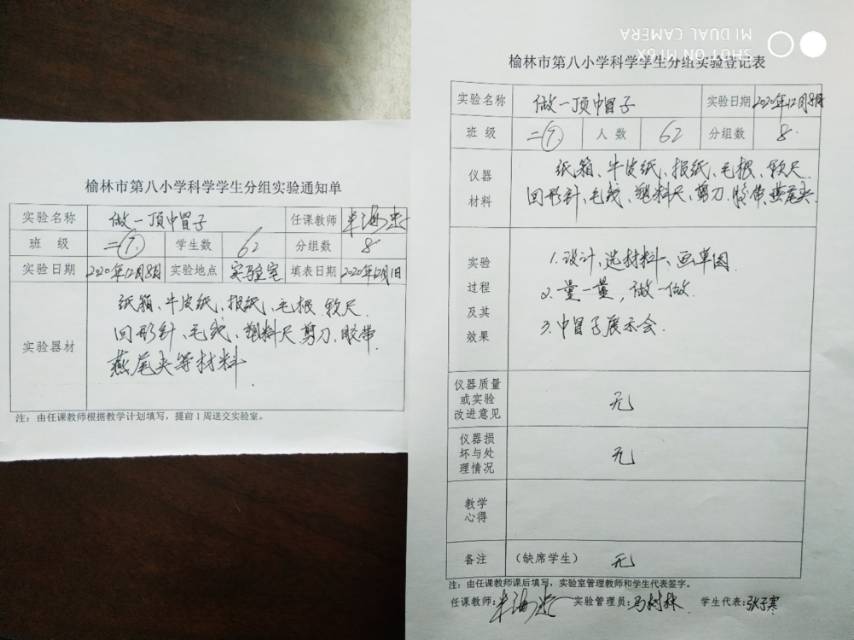 榆林市第八小学科学学生分组实验通知单
实验名称 做一顶帽子 任课教师
班 级 二⑦ 学生数 62 分组数 8
实验日期 2020年12月8日 实验地点 实验室 填表日期 2020年12月1日
实验器材
纸箱、牛皮纸、报纸、毛根、软尺
回形针、毛线、塑料尺、剪刀、胶带
燕尾夹等材料
注：由任课教师根据教学计划填写，提前1周送交实验室。
SHOT ON MI 6X
MI DUAL CAMERA
榆林市第八小学科学学生分组实验登记表
实验名称 做一顶帽子 实验日期 2020年12月8日
班 级 二⑦ 人 数 62 分组数 8
仪器材料
纸箱、牛皮纸、报纸、毛根、软尺
回形针、毛线、塑料尺、剪刀、胶带、燕尾夹
实验过程及其效果
1.设计、选材料、画草图
2.量一量，做一做
3.帽子展示会.
仪器质量或实验改进意见 无
仪器损坏与处理情况 无
教学心得
备注 （缺席学生） 无
注：由任课教师课后填写，实验室管理教师和学生代表签字。
任课教师： 实验管理员：马树林 学生代表：张子寒